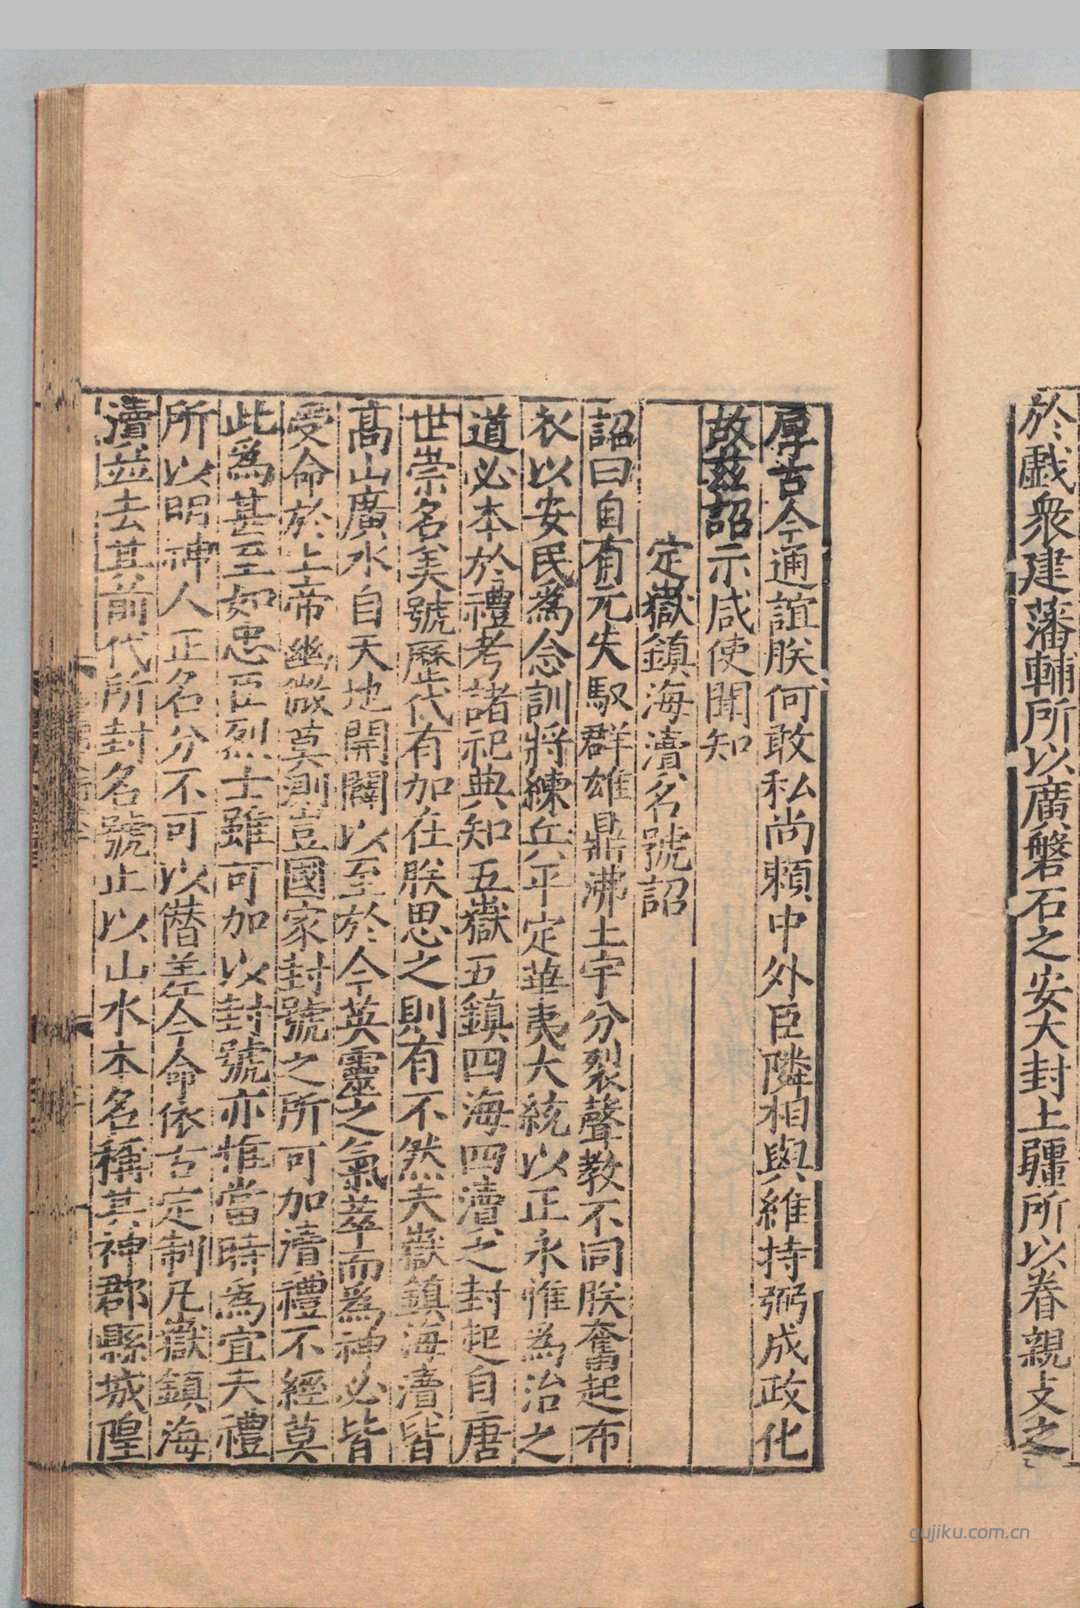 於戲衆建藩輔所以廣磐石之安大封土疆所以眷親支之
厚古今通誼朕何敢私尚賴中外臣隣相與維持弼成政化
故茲詔示咸使聞知
定嶽鎮海瀆名號詔
詔曰自有元失馭群雄鼎沸土宇分裂聲教不同朕奮起布
衣以安民爲念訓將練兵平定華夷大統以正永惟爲治之
道必本於禮考諸祀典知五嶽五鎮四海四瀆之封起自唐
世崇名美號歷代有加在朕思之則有不然夫嶽鎮海瀆皆
高山廣水自天地開闢以至於今英靈之氣萃而爲神必皆
受命於上帝幽微莫測豈國家封號之所可加瀆禮不經莫
此爲甚至如忠臣烈士雖可加以封號亦惟當時爲宜夫禮
所以明神人正名分不可以僭差今命依古定制凡嶽鎮海
瀆並去其前代所封名號止以山水本名稱其神郡縣城隍
gujiku.com.cn